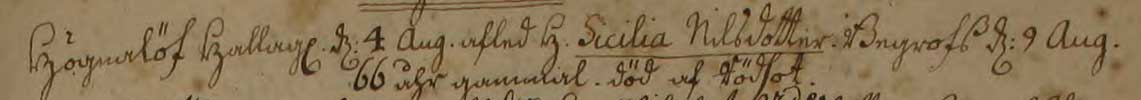 Högnalöf Hallagr. d: 4 Aug. afled H. Sicilia Nilsdotter. Begrofs d: 9 Aug.
66 åhr gammal. död af Rödsot.